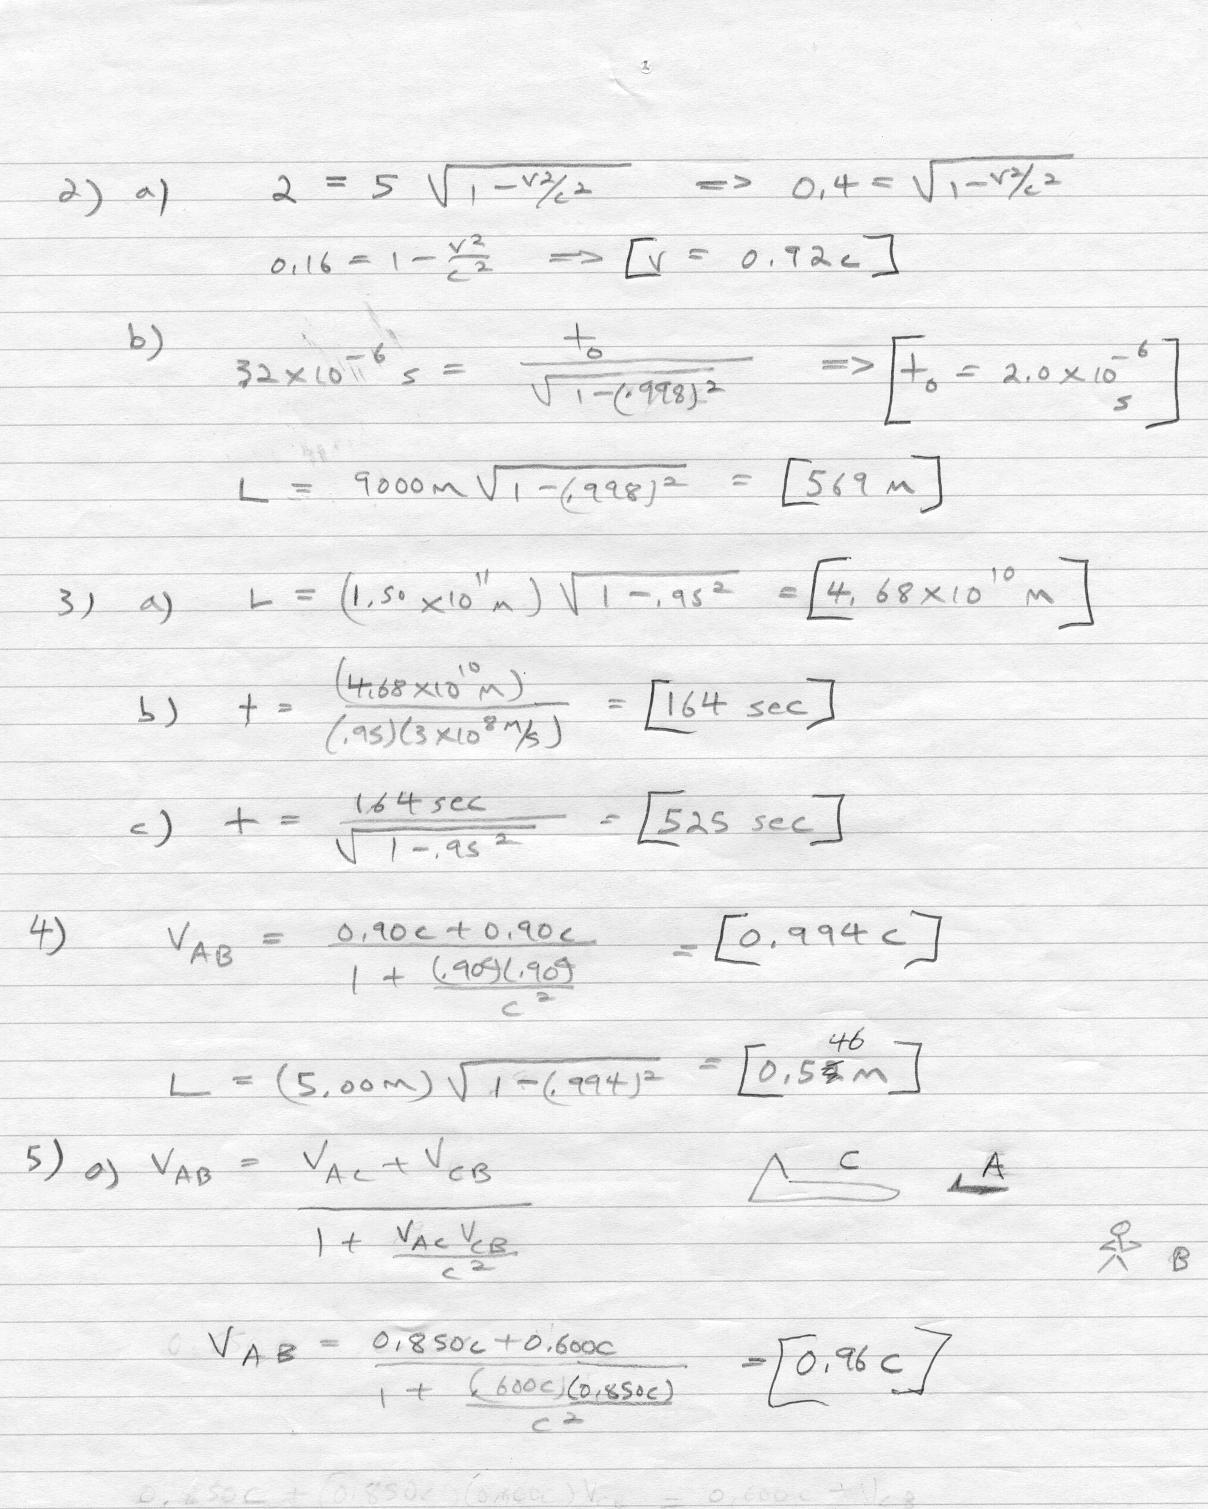 1
2) a) 2 = 5 √(1 - v²/c²) => 0.4 = √(1 - v²/c²)
0.16 = 1 - v²/c² => [v = 0.92c]
b) 32 x 10⁻⁶ s = t₀ / √(1-(.998)²) => [t₀ = 2.0 x 10⁻⁶ s]
L = 9000m √(1-(.998)²) = [569 m]
3) a) L = (1.50 x10¹¹ m) √(1-.95²) = [4.68x10¹⁰ m]
b) t = (4.68 x10¹⁰ m) / (.95)(3 x10⁸ m/s) = [164 sec]
c) t = 164 sec / √(1-.95²) = [525 sec]
4) V_AB = (0.90c + 0.90c) / (1 + (.90c)(.90c)/c²) = [0.994 c]
L = (5.00m) √(1-(.994)²) = [0.546 m]
5) a) V_AB = (V_AC + V_CB) / (1 + V_AC V_CB / c²) C A
B
V_AB = (0.850c + 0.600c) / (1 + (.600c)(0.850c)/c²) = [0.96 c]